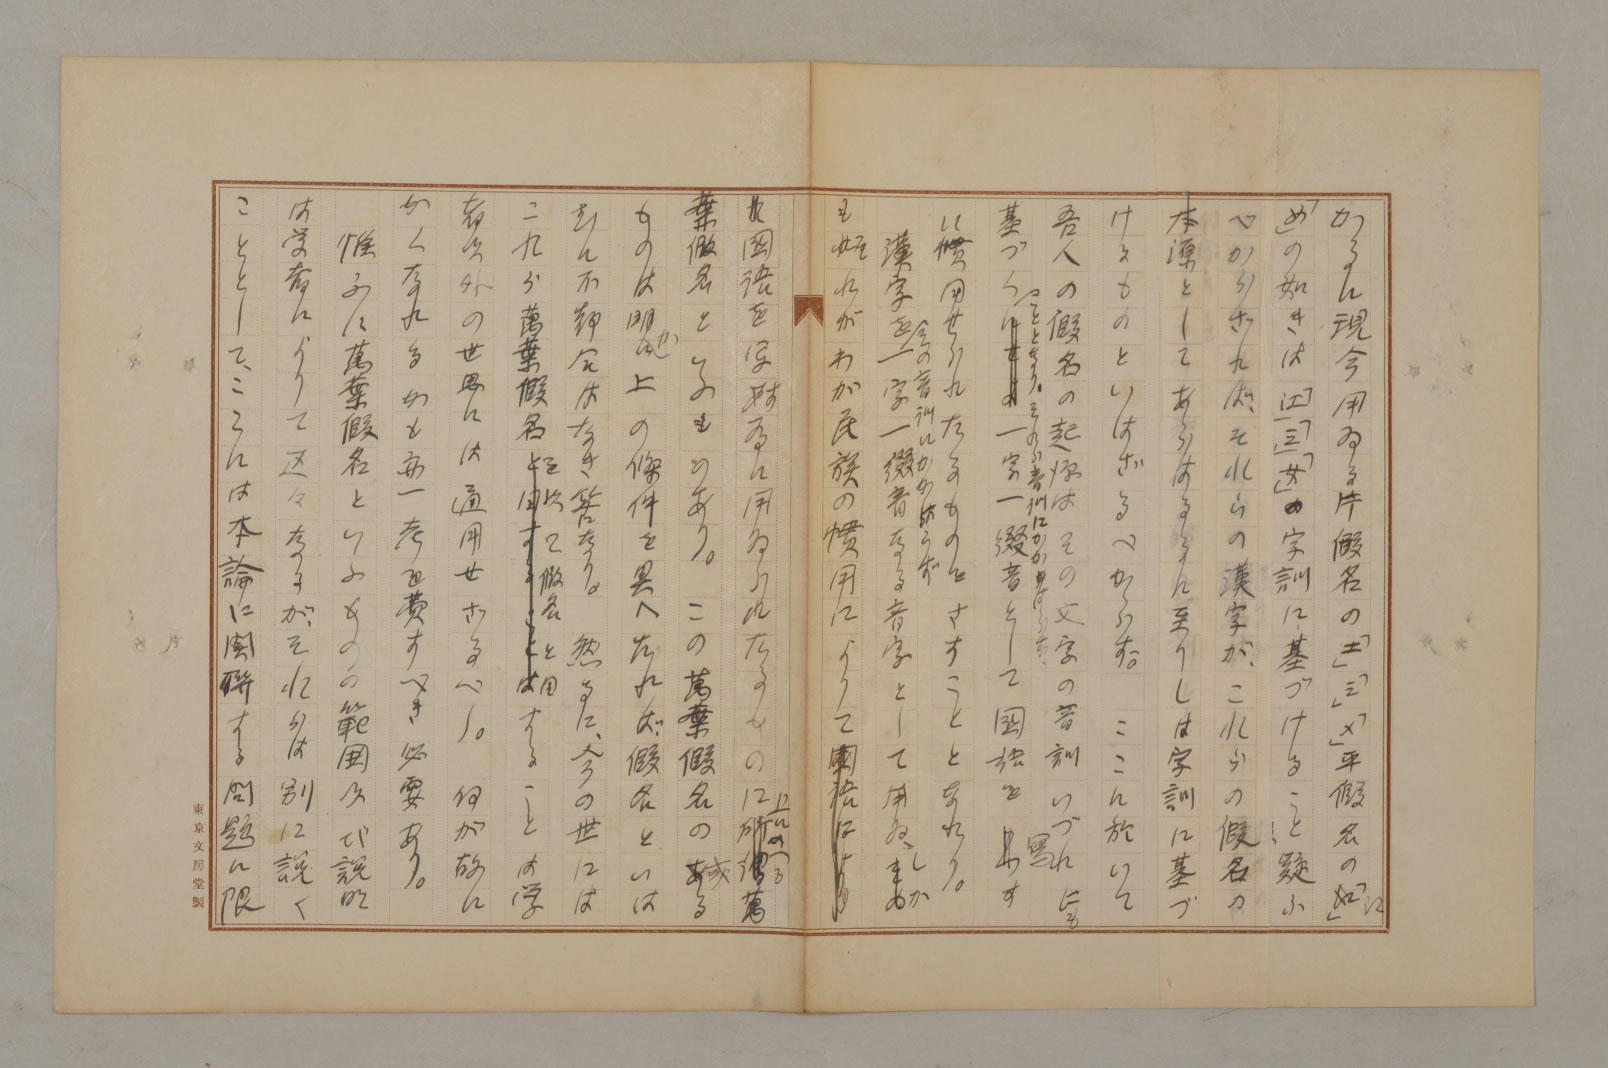 かるに現今用ゐる片假名の「エ」「ミ」「メ」平假名の「江」
「め」の如きは「江」「三」「女」の字訓に基づけること、疑ふ
べからざれば、それらの漢字が、これらの假名の
本源としてあらはるるに至りしは字訓に基づ
けるものといはざるべからず。ここに於いて
吾人の假名の起源はその文字の音訓いづれにも
基づくこととなり、そのが音訓にかかはらず、一字一綴音として國語を寫す
に慣用せられたるものをさすこととなれり。
漢字をその音訓にかかはらず一字一綴音なる音字として用ゐ、しか
も それがわが民族の慣用によりて
國語を写す為に用ゐられたるものに上にいへる萬
葉假名といふものあり。この萬葉假名の或
ものは明かに上の條件を具へたれば、假名といは
むに不都合はなき筈なり。然るに、今の世には
これを萬葉假名と以て假名とすることは学
者以外の世界には通用せざるべし。何が故に
かくなれるかも亦一考を費すべき必要あり。
惟ふに萬葉假名といふものの範囲及び説明
は学者によりて区々なるが、それらは別に説く
こととして、ここには本論に関聯する問題に限
東京文房堂製